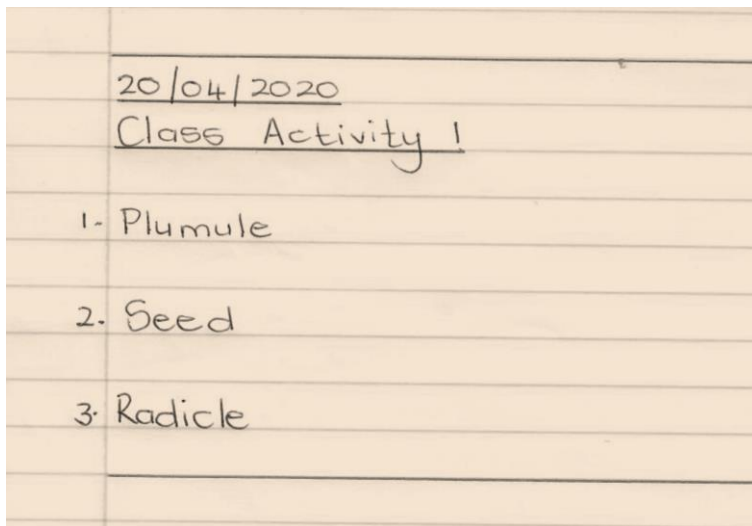 20/04/2020
Class Activity 1
1. Plumule
2. Seed
3. Radicle